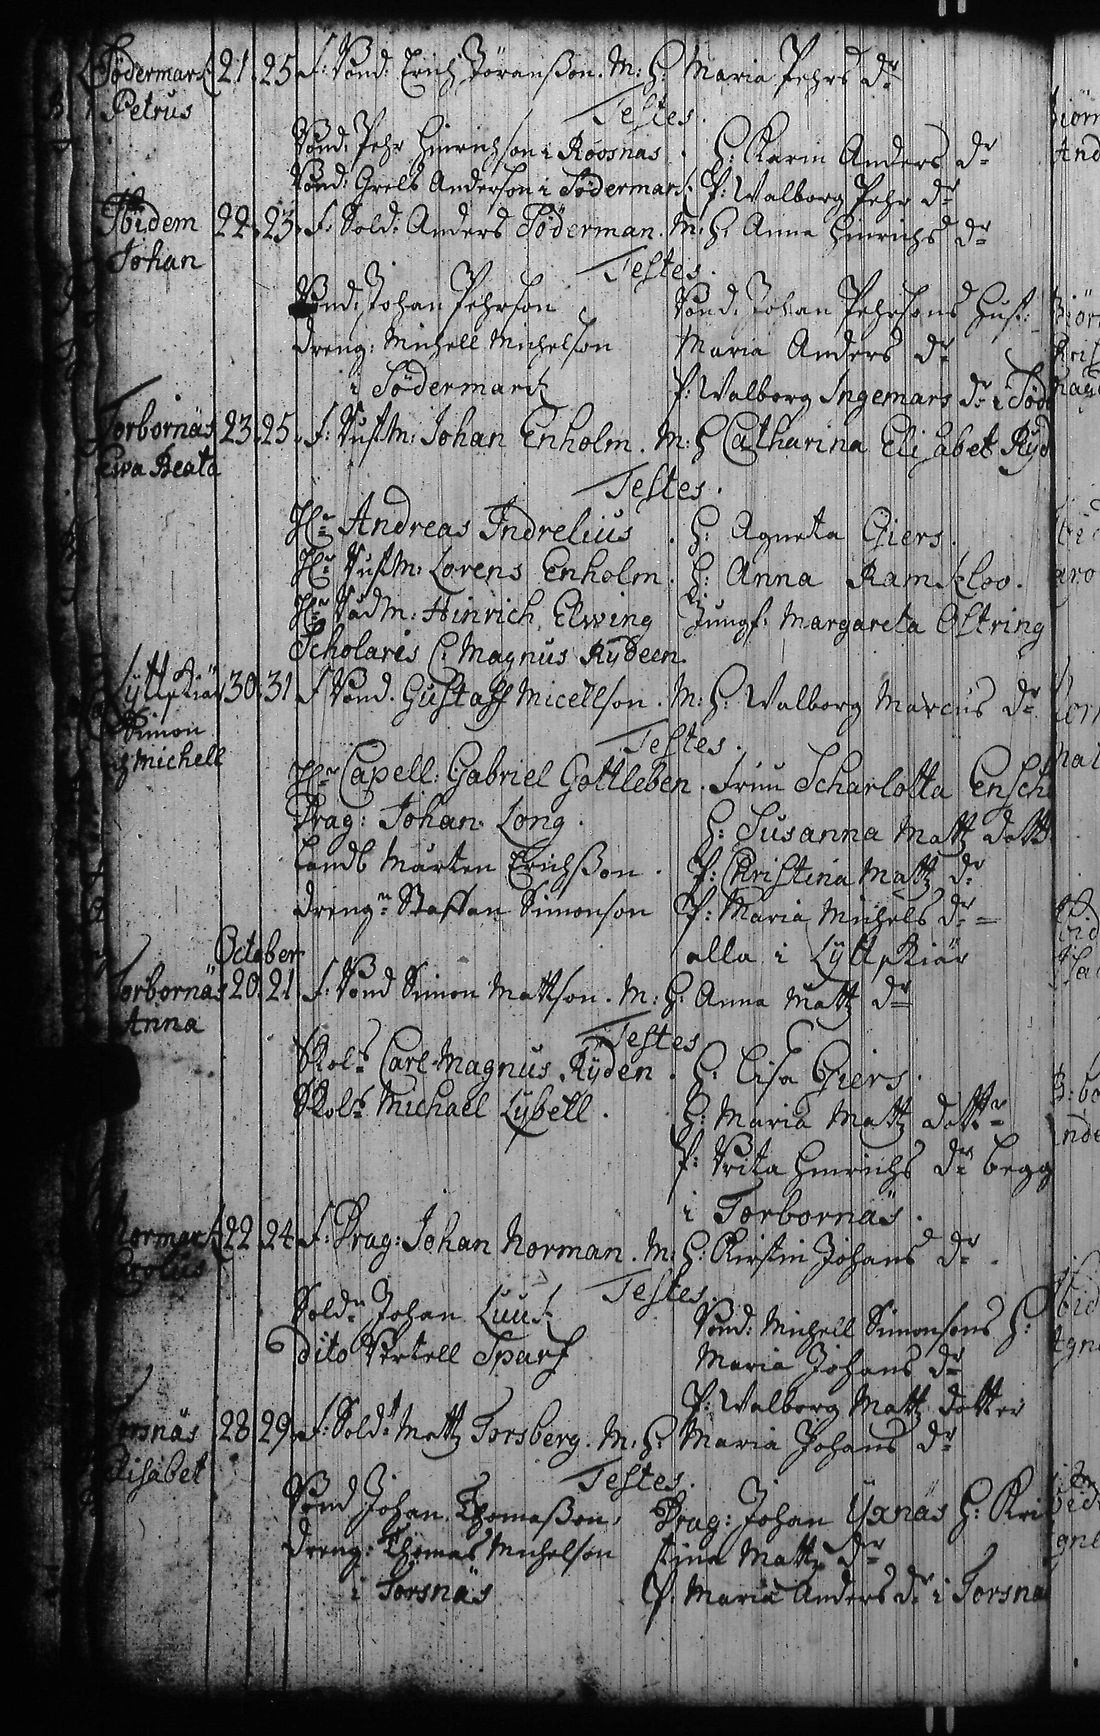 Södermark 21 25 F: Bond: Erich Jöransson. M: H: Maria Pehrs dr
Petrus
Testes.
Bond: Pehr Hinrichson i Roosnäs. H: Karin Anders dr
Bond: Grels Anderson i Södermark. P: Walborg Pehr dr
Ibidem 22. 23. F: Sold: Anders Söderman. M: H: Anna Hinrichs dr
Johan
Testes.
Bond: Johan Pehrson Bond: Johan Pehrsons Hust:
Dreng: Michell Michelson Maria Anders dr
i Södermark P: Walborg Ingemars dr i Söd
Torbornäs 23. 25. F: Bustm: Johan Enholm. M: H Catharina Elisabet Ryd
Ewa Beata
Testes.
Hr Andreas Indrelius. H: Agneta Giers.
Hr Bustm: Lorens Enholm. H: Anna Ramkloo.
Hr Rådm: Hinrich Elwing Jungf: Margareta Östring
Scholaris C. Magnus Rydeen.
Lyttskiär 30. 31 F Bond. Gustaff Micellson. M: H: Walborg Marcus dr
Simon
Michell
Testes.
Hr Capell: Gabriel Gottleben. Fruu Scharlotta Ensch
Drag: Johan Long. H: Susanna Matz dott
Landb Mårten Erichsson. P: Christina Matz dr
Drengn Staffan Simonson P: Maria Michels dr
alla i Lyttskiär
October
Torbornäs 20. 21 F: Bond Simon Mattson. M: H: Anna Matz dr
Anna
Testes
Skols Carl Magnus Ryden. H: Lisa Giers.
Skols Michael Lybell. H: Maria Matz dottr
P: Brita Hinrichs dr begg
i Torbornäs.
Normark 22 24 F: Drag: Johan Norman. M: H: Kirstin Johans dr.
Testes.
Soldn Johan Luur Bond: Michell Simonsons H:
Dito Bertell Sparf Maria Johans dr
P: Walborg Matz dotter
orsnäs 28 29 F: Sold: Matz Forsberg. M: H: Maria Johans dr
Elisabet
Testes.
Bond Johan Thomasson. Drag: Johan Yxnäs H: Kri
Dreng: Thomas Michelson stina Matz dr
i Torsnäs P: Maria Anders dr i Torsnä